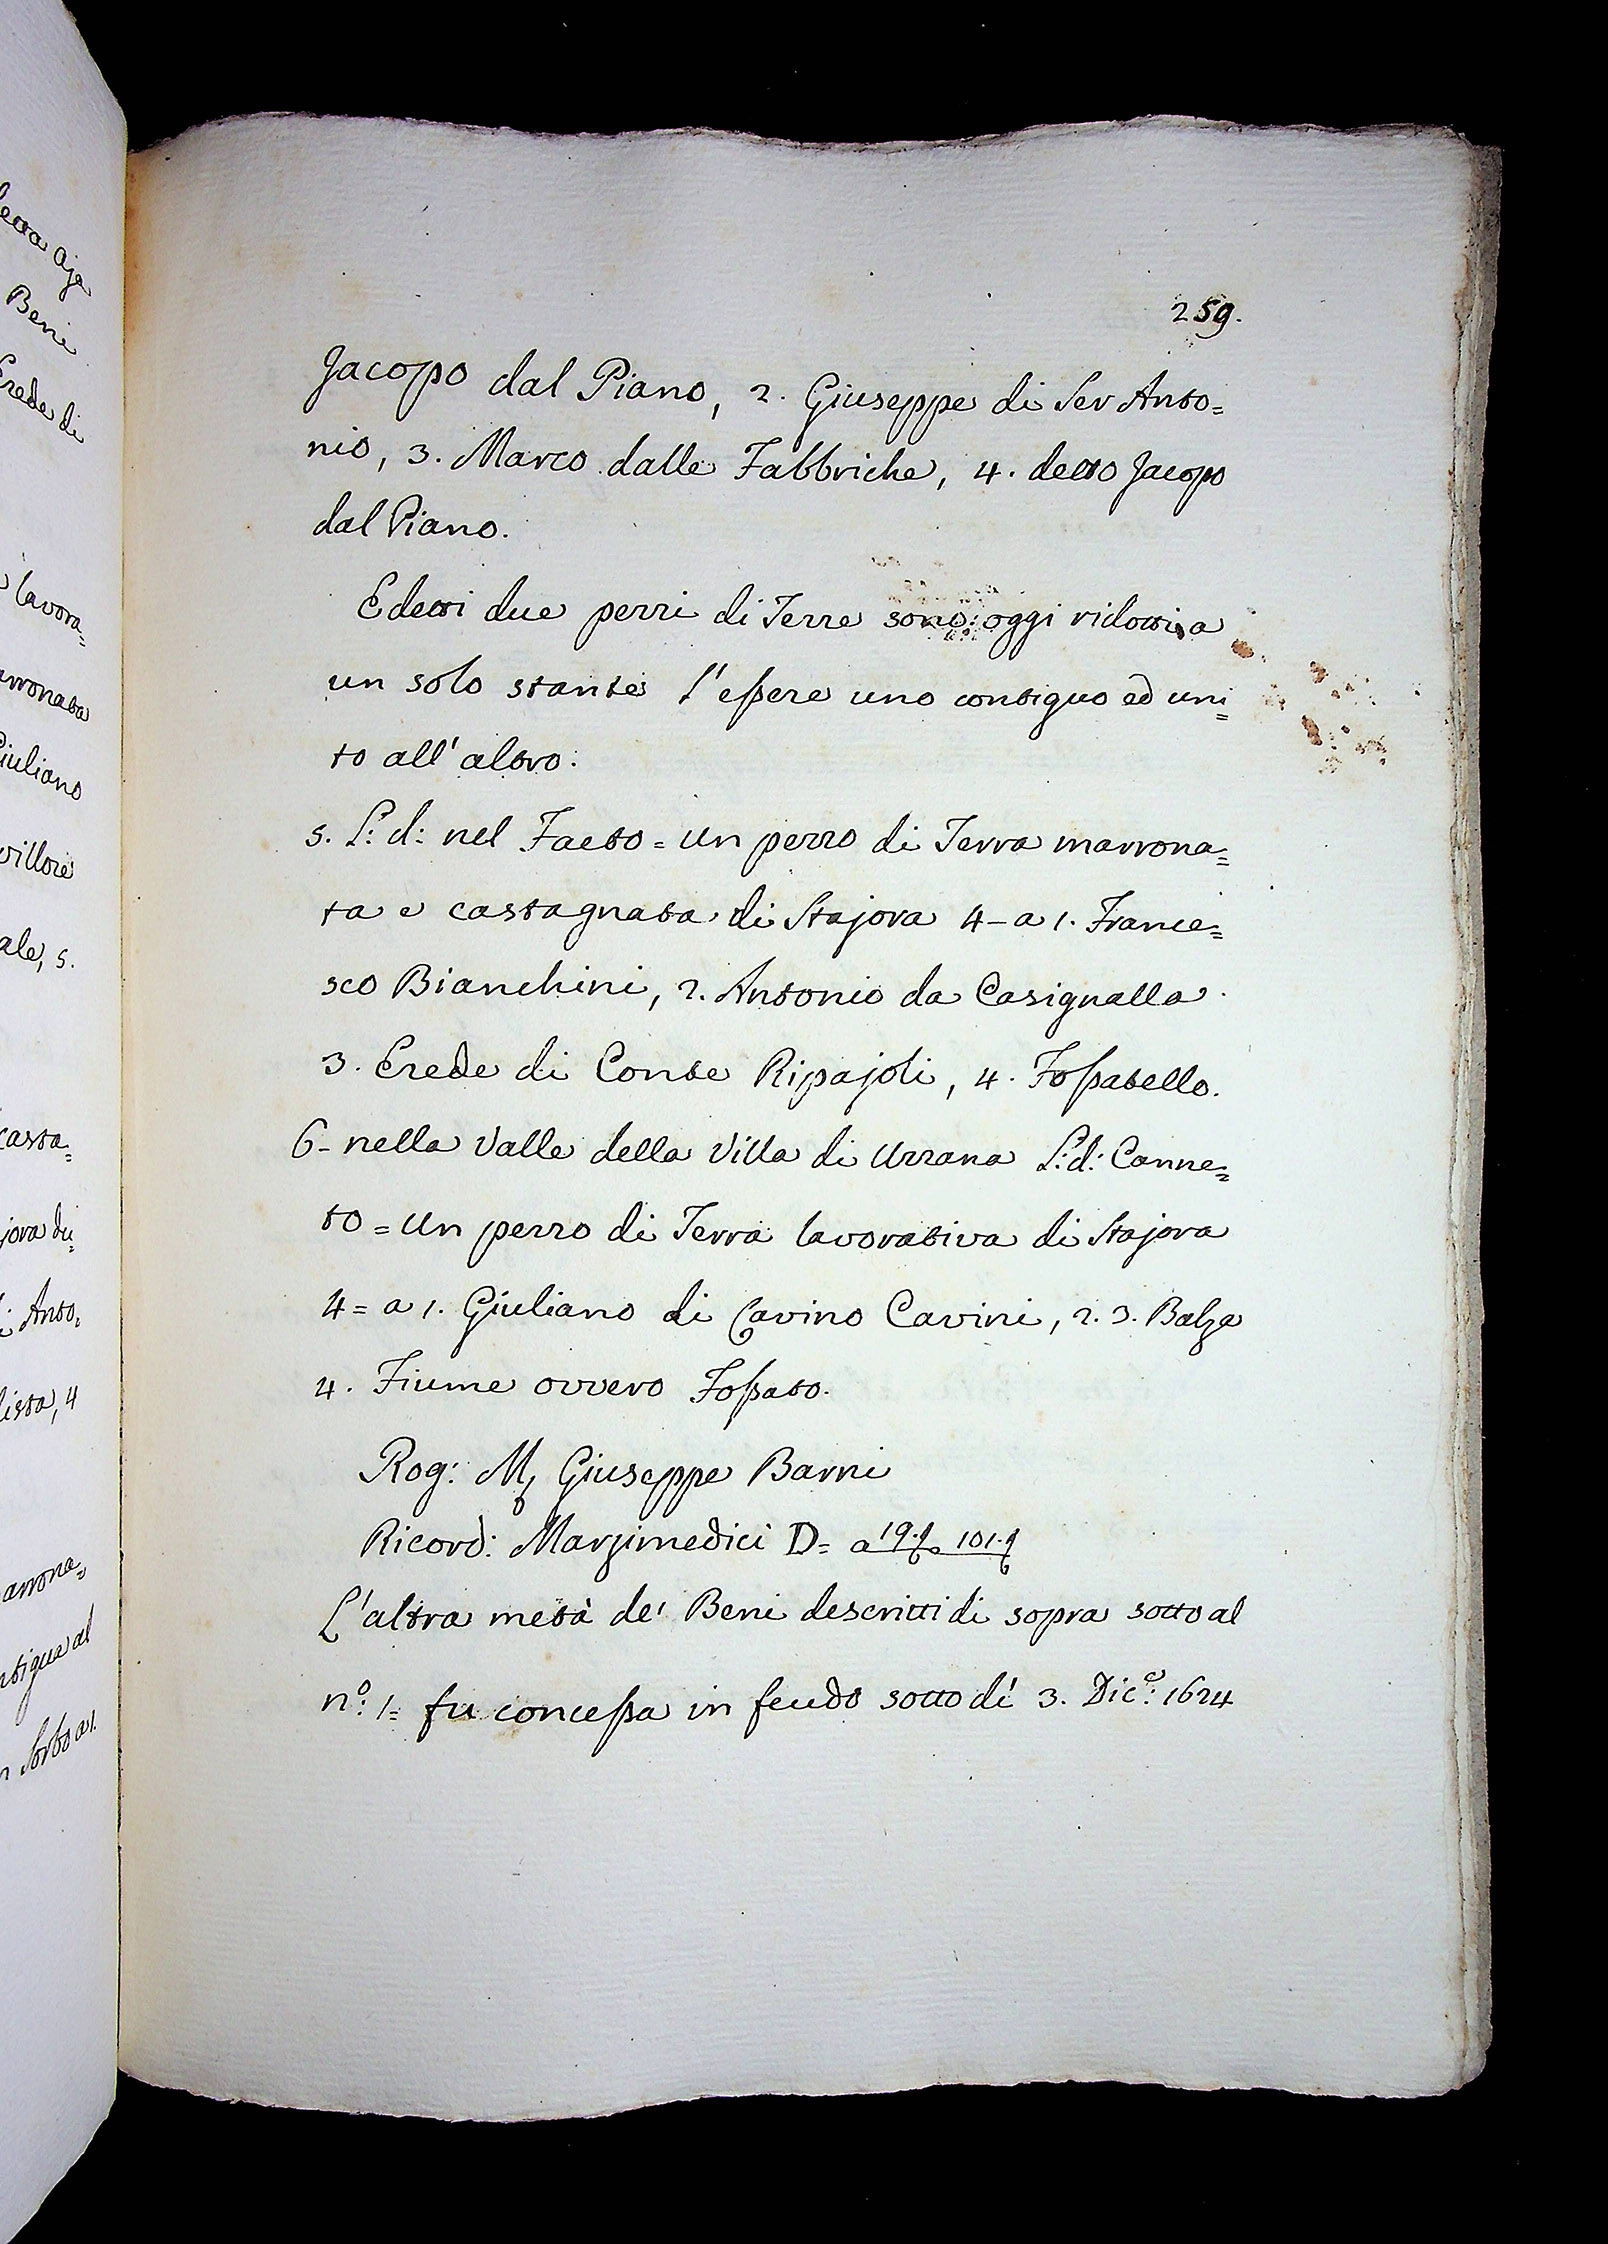 259.
Jacopo dal Piano, 2. Giuseppe di Ser Anto=
nio, 3. Marco dalle Fabbriche, 4. detto Jacopo
dal Piano.
E detti due pezzi di Terre sono oggi ridotti a
un solo stante l'essere uno contiguo ed uni=
to all'altro:
5. L: d: nel Faeto = Un pezzo di Terra marrona=
ta e castagnata di Stajora 4 - a 1. France=
sco Bianchini, 2. Antonio da Casignalla.
3. Erede di Conte Ripajoli, 4. Fossatello.
6 - nella Valle della Villa di Uzzana L: d: Canne=
to = Un pezzo di Terra lavorativa di Stajora
4 = a 1. Giuliano di Cavino Cavini, 2. 3. Balza
4. Fiume ovvero Fossato.
Rog: M. Giuseppe Barni
Ricord: Marzimedici D = a 19. 101.
L'altra metà de' Beni descritti di sopra sotto al
n.º: 1 = fu concessa in feudo sotto dì 3. Dic.e: 1624
lavora=
Beni
Erede di
Giuliano
ale, 5.
casta=
Anto=
lista, 4